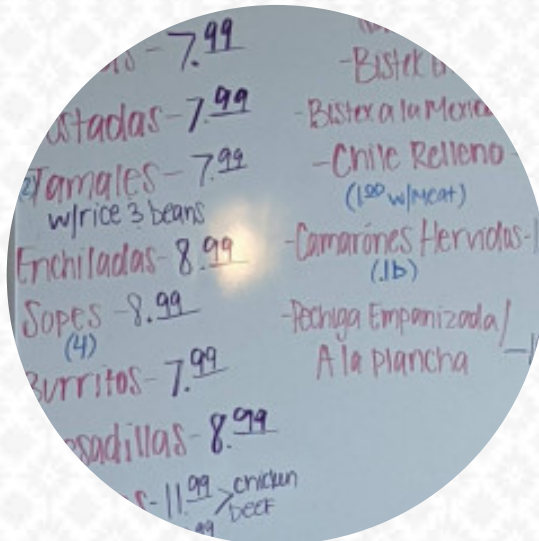 7.99
Tostadas - 7.99
(2) Tamales - 7.99
w/rice 3 beans
Enchiladas - 8.99
Sopes - 8.99
(4)
Burritos - 7.99
Quesadillas - 8.99
11.99 > chicken
beef
.99
- Bistek
- Bistex a la Mexic
- Chile Relleno -
(1.00 w/Meat)
- Camarónes Hervidos -
(.1b)
- Pechuga Empanizada/
A la plancha